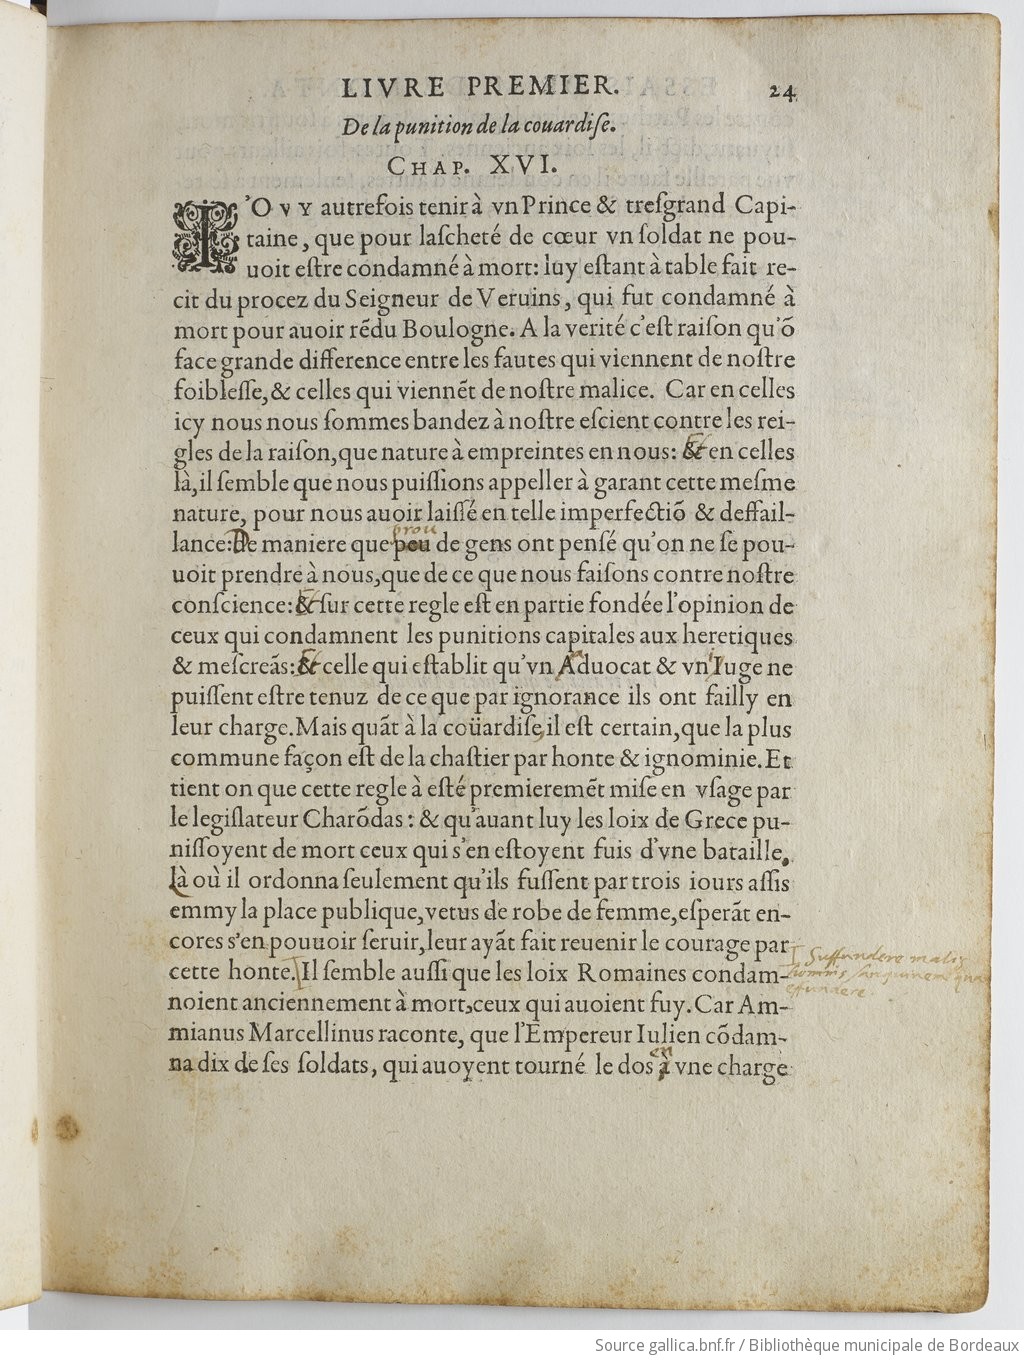 LIVRE PREMIER. 24
De la punition de la couardiſe.
CHAP. XVI.
I'OVY autrefois tenir à vn Prince & treſgrand Capi-
taine, que pour laſcheté de cœur vn ſoldat ne pou-
uoit eſtre condamné à mort: luy eſtant à table fait re-
cit du procez du Seigneur de Veruins, qui fut condamné à
mort pour auoir rẽdu Boulogne. A la verité c'eſt raiſon qu'õ
face grande difference entre les fautes qui viennent de noſtre
foibleſſe, & celles qui viennẽt de noſtre malice. Car en celles
icy nous nous ſommes bandez à noſtre eſcient contre les rei-
gles de la raiſon, que nature à empreintes en nous: & en celles
là, il ſemble que nous puiſſions appeller à garant cette meſme
nature, pour nous auoir laiſſé en telle imperfectiõ & deffail-
prou
lance: De maniere que peu de gens ont penſé qu'on ne ſe pou-
uoit prendre à nous, que de ce que nous faiſons contre noſtre
conſcience: & ſur cette regle eſt en partie fondée l'opinion de
ceux qui condamnent les punitions capitales aux heretiques
& meſcreãs: & celle qui eſtablit qu'vn Aduocat & vn Iuge ne
puiſſent eſtre tenuz de ce que par ignorance ils ont failly en
leur charge. Mais quãt à la coüardiſe, il eſt certain, que la plus
commune façon eſt de la chaſtier par honte & ignominie. Et
tient on que cette regle à eſté premieremẽt miſe en vſage par
le legiſlateur Charõdas: & qu'auant luy les loix de Grece pu-
niſſoyent de mort ceux qui s'en eſtoyent fuis d'vne bataille.
Là où il ordonna ſeulement qu'ils fuſſent par trois iours aſſis
emmy la place publique, vetus de robe de femme, eſperãt en-
cores s'en pouuoir ſeruir, leur ayãt fait reuenir le courage par
cette honte. Il ſemble auſſi que les loix Romaines condam-
Suffundere malis
hominis sanguinem quam
effundere.
noient anciennement à mort, ceux qui auoient fuy. Car Am-
mianus Marcellinus raconte, que l'Empereur Iulien cõdam-
en
na dix de ſes ſoldats, qui auoyent tourné le dos à vne charge
Source gallica.bnf.fr / Bibliothèque municipale de Bordeaux